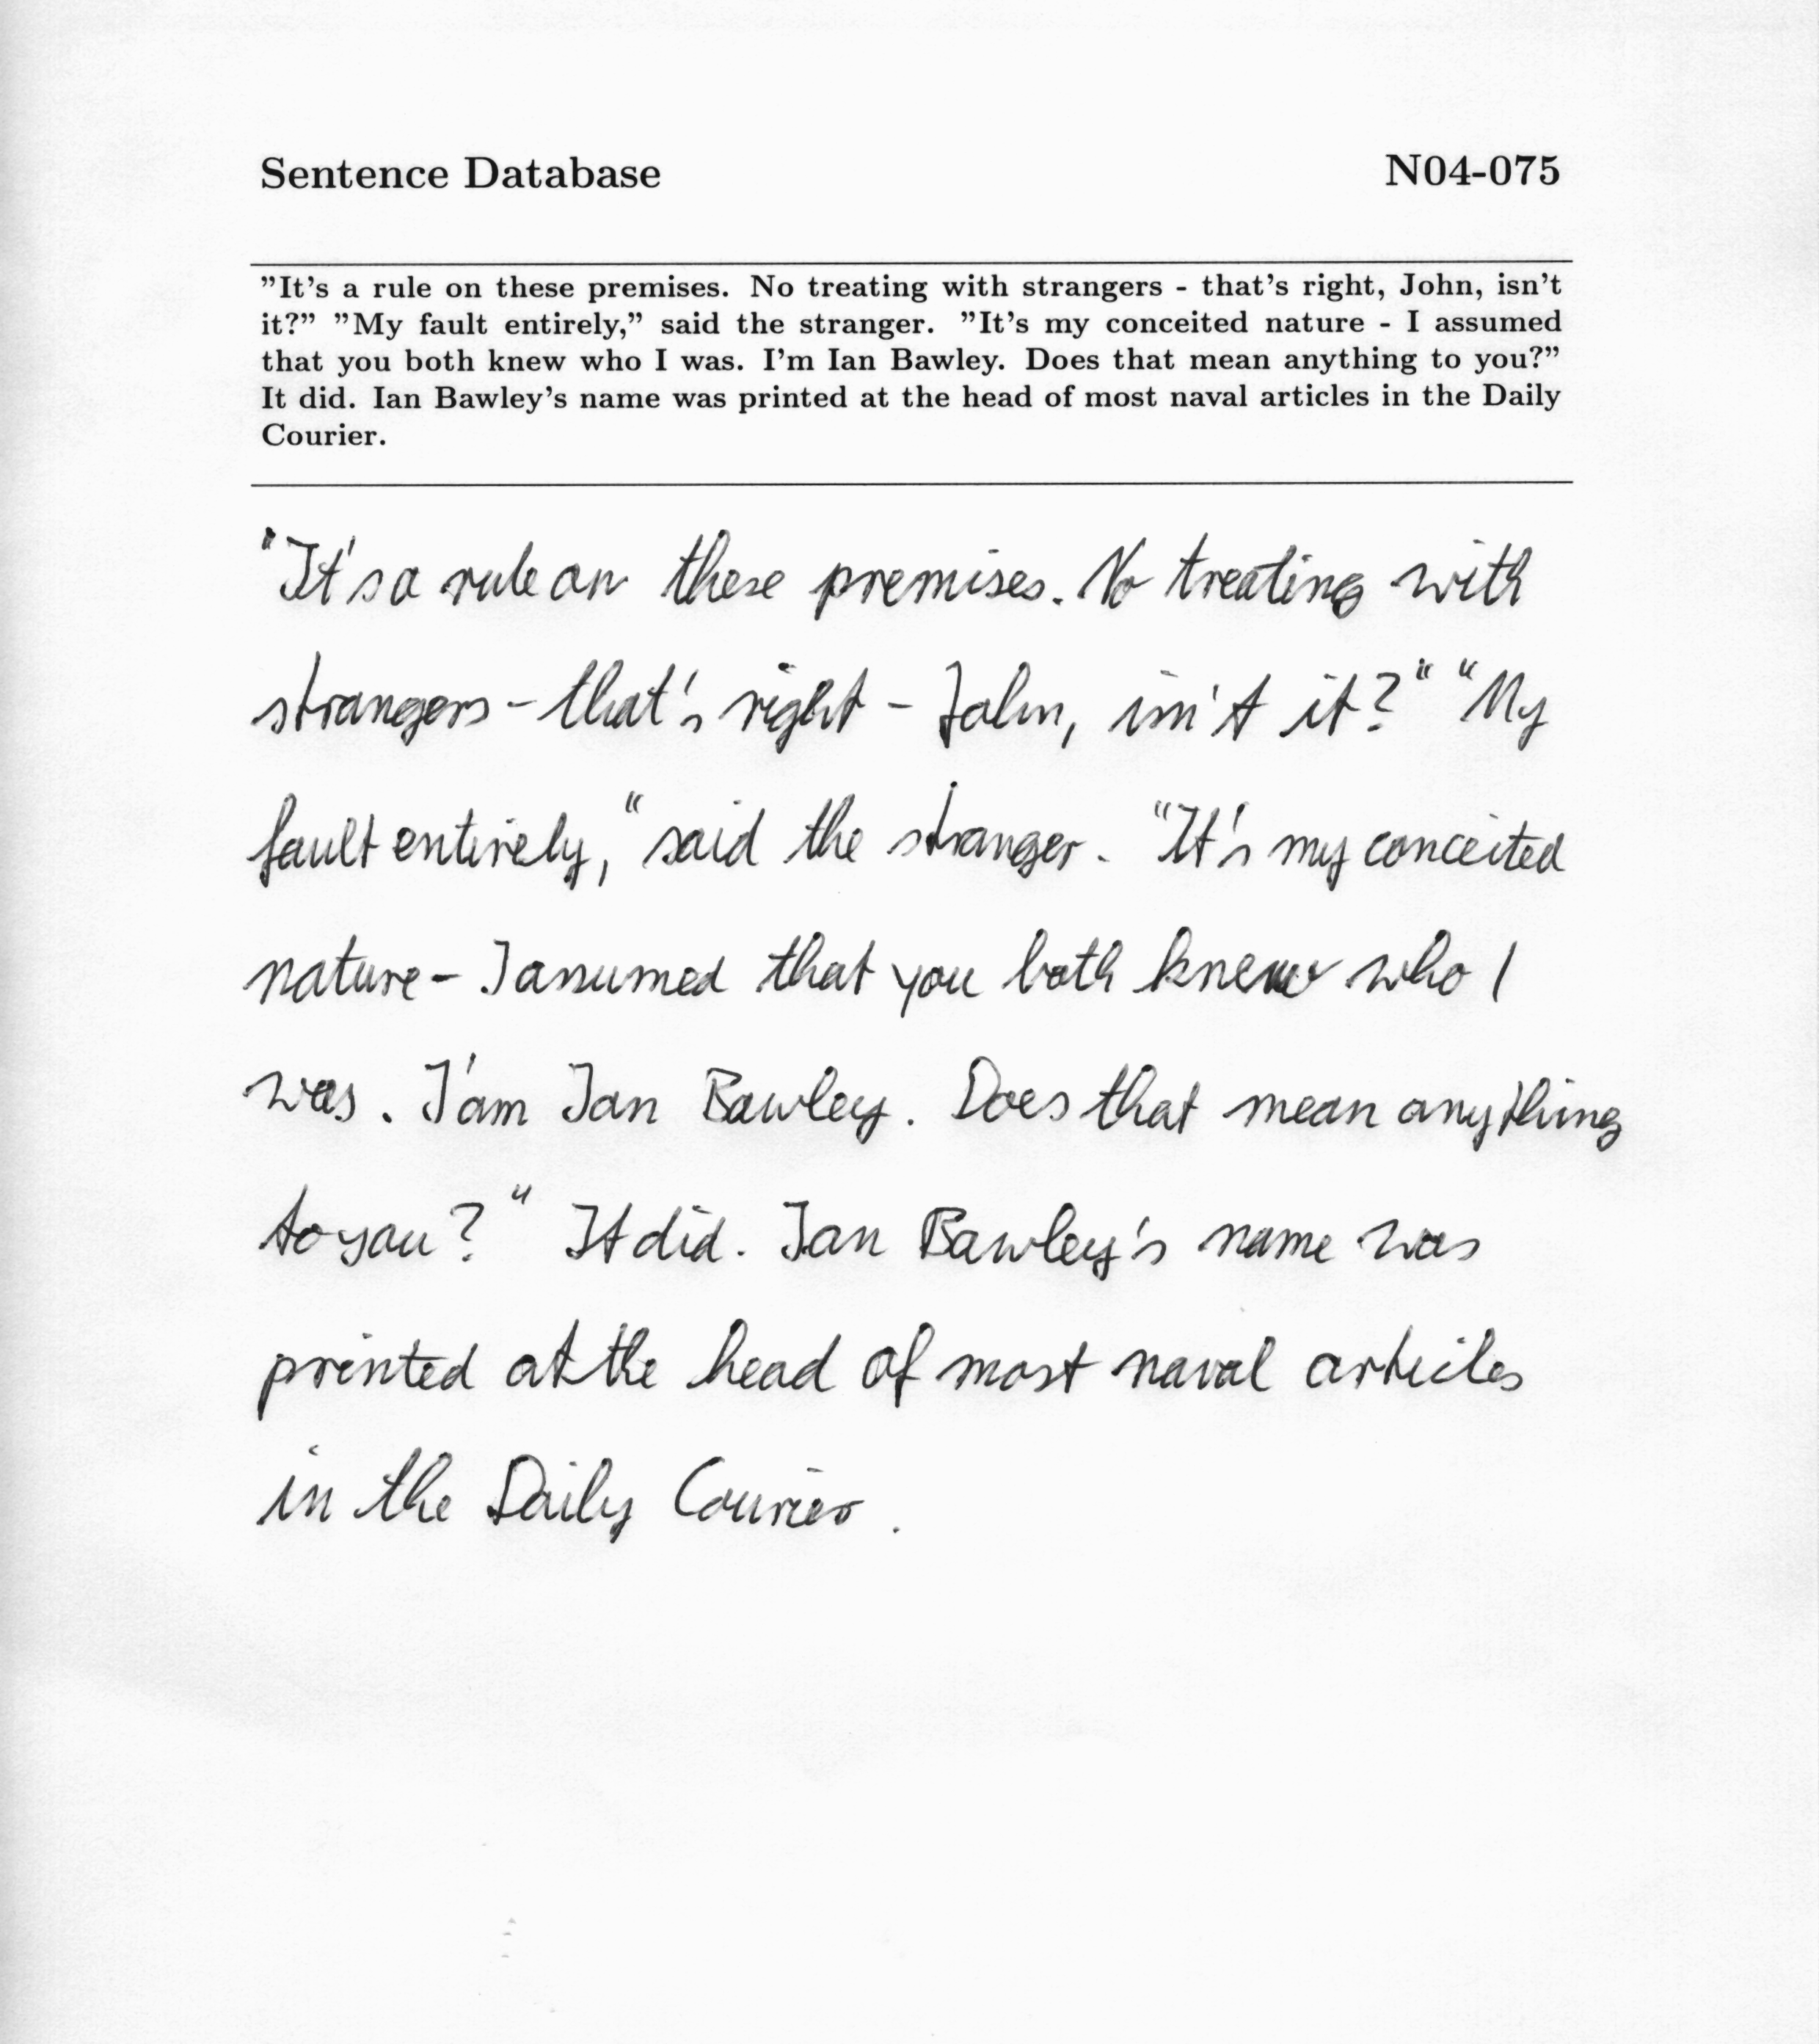 Sentence Database N04-075
”It’s a rule on these premises. No treating with strangers - that’s right, John, isn’t
it?” ”My fault entirely,” said the stranger. ”It’s my conceited nature - I assumed
that you both knew who I was. I’m Ian Bawley. Does that mean anything to you?”
It did. Ian Bawley’s name was printed at the head of most naval articles in the Daily
Courier.
"It's a rule on these premises. No treating with
strangers - that's right - John, isn't it?" "My
fault entirely," said the stranger. "It's my conceited
nature - I assumed that you both knew who I
was. I'am Ian Bawley. Does that mean anything
to you?" It did. Ian Bawley's name was
printed at the head of most naval articles
in the Daily Courier.